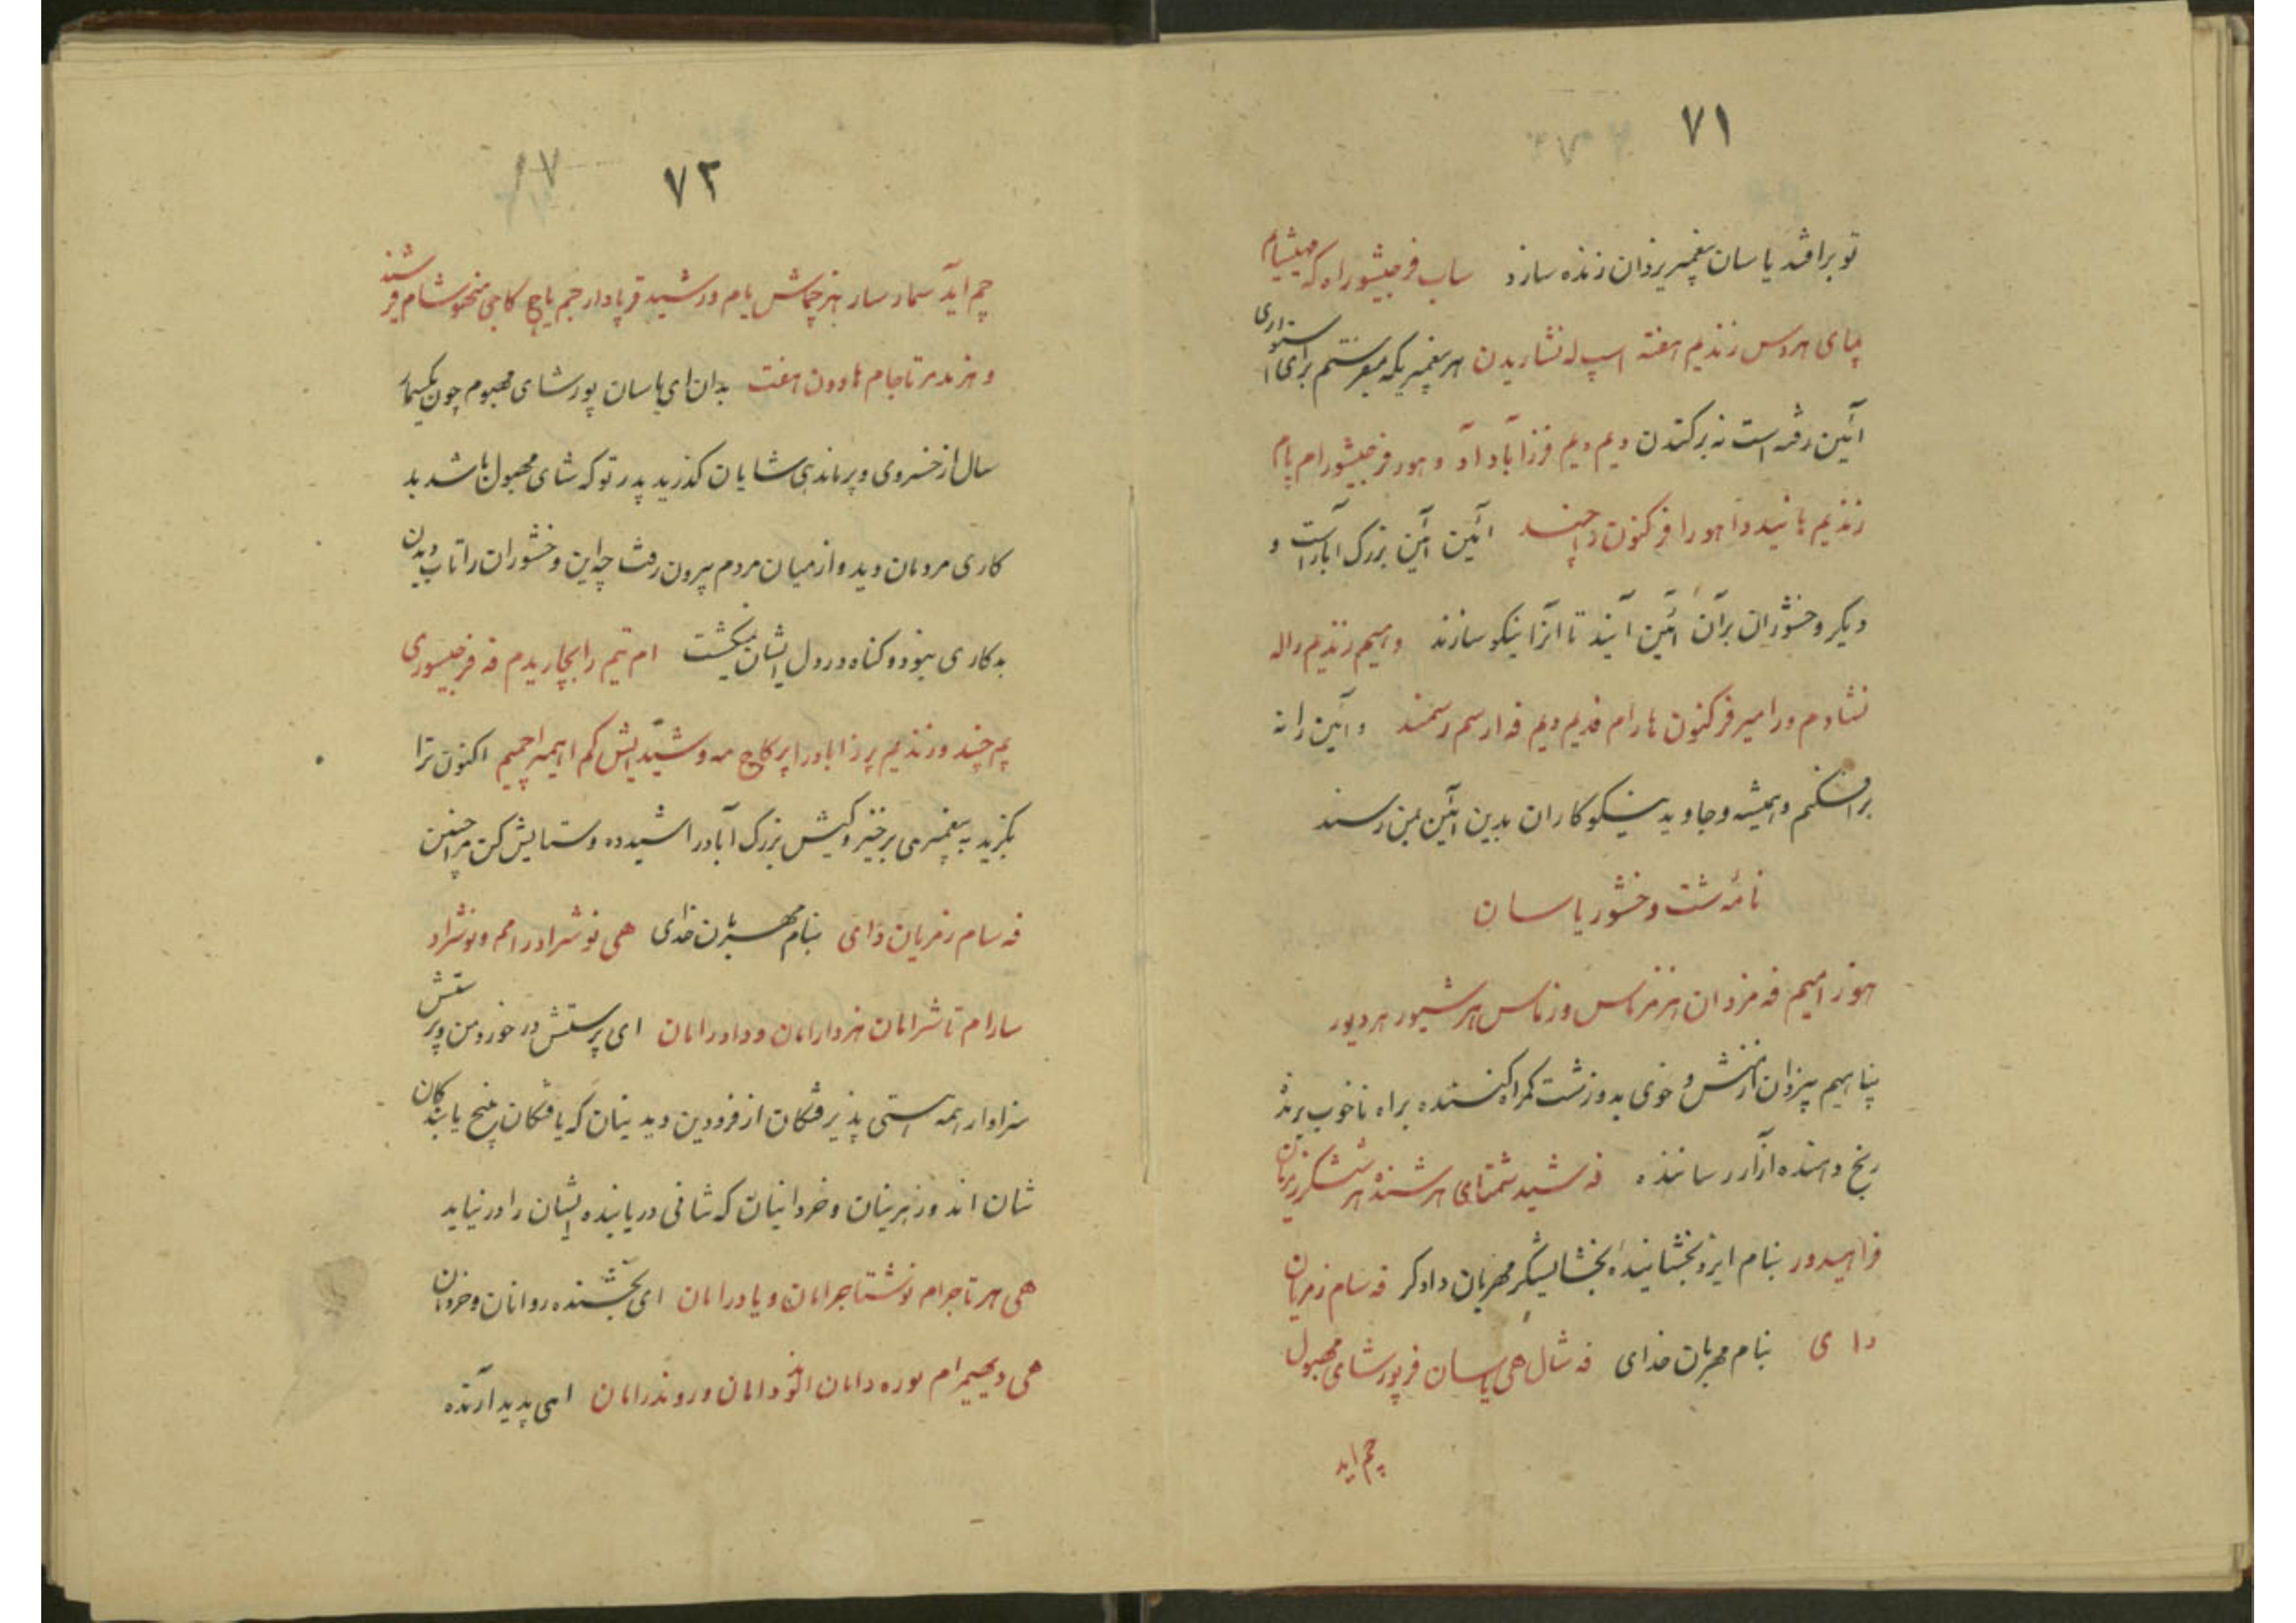 ۷۱
تو برافتد یاسان پیغمبر یزدان زنده سازد ساب فرجیشوراه که میشیام
پیای هروس زندیم هفته اسپ له نشاریدن هر پیغمبریکه میفرستم برای استواری
آئین رفته است نه برکندن دیم دیم فرزآباد آد و هور فرجیشورام پام
زندیم با نیدد اهورا فرکنون داچند آئین آئین بزرگ آباد است و
دیگر وخشوران برآن آئین آیند تا آنرا نیکو سازند و همیم زندیم راله
نشادم ورامیر فرکنون هارام فدیم دیم فه ارسم رسمند و آئین را نه
برافکنم و همیشه و جاوید نیکوکاران بدین آئین بمن رسند
نامه شت وخشور یاسان
هوزامیم فه مزدان هزمزماس وزماس هرشیور هردیور
پناهیم بیزدان از منش و خوی بد و زشت گمراه کننده براه ناخوب برنده
رنج دهنده آزار رساننده فه شید شمتای هرشنده هرششگر زمربان
فراهیدور بنام ایزد بخشاینده بخشایشگر مهربان دادگر فه سام زمربان
دای بنام مهربان خدای فه شال هی یاسان فرپور شای مهبول
چم اید
۷۲
۱۷
چم اید سمار سار هنرچماش یام ورشید قرپادار جم یاج کاجی منحوشام فرشند
و هزمدمر تاجام هاودن هفت بدان ای یاسان پور شای مهبول چون یکسمار
سال از خسروی و پرماندهی شایان گذرید پدر تو که شای مهبول باشد بد
کاری مردمان دیده از میان مردم بیرون رفت چه این وخشوران را تاب دیدن
بدکاری نبود و گناه در دل ایشان نمیگشت ام تیم رابچاریدم فه فرجیسوری
پم چند ورزندیم پرزاباد را پرکاج مه و شیدایش کم اهیمه راچمیم اکنون ترا
گزید به پیغمبری برخیز و کیش بزرگ آباد را شید ده و ستایش کن مرا چنین
فه سام زمربان دای بنام مهربان خدای هی نوشراد رامم و نوشراد
سارام تاشرامان هنردارامان و داورامان ای پرستش در خور من و پرستش
سزاوار همه هستی پذیرفتگان از فرودین دیدنیان که یافتگان پنج یابندگان
شان اند و زبرینان و خردانیان که شانی دریابنده ایشان را در نیابد
هی هرتاجرام نوشتاجرامان و یادرامان ای بخشنده روانان و خردان
هی دیهیمرام نوره دامان اتودامان ورونددرامان ای پدید آرنده